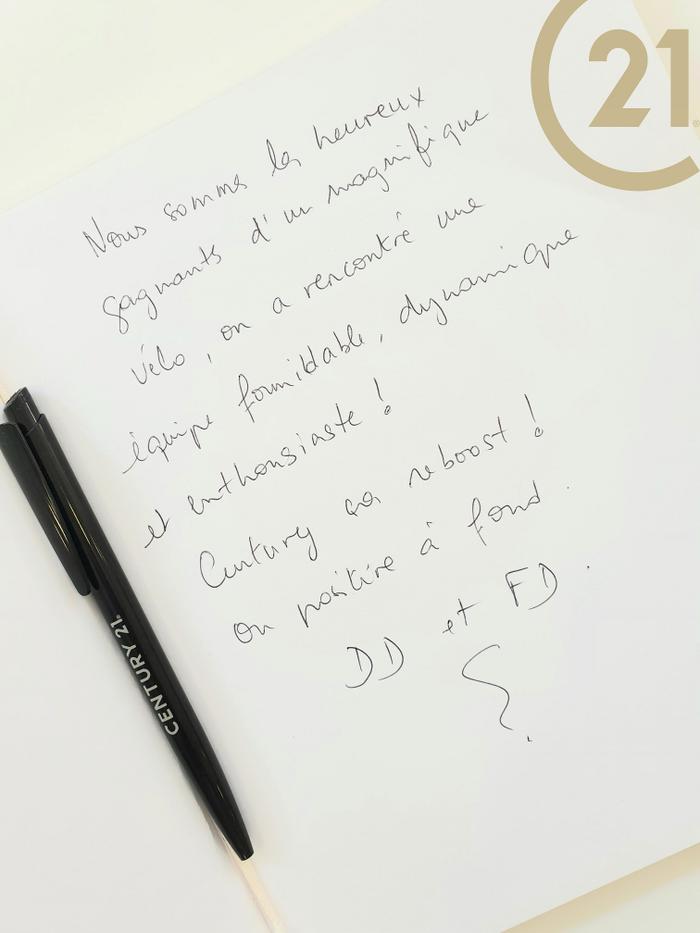 C21®
Nous somme les heureux
gagnants d'un magnifique
vélo, on a rencontré une
équipe formidable, dynamique
et enthousiaste !
Century ça reboost !
on positive à fond.
DD et FD.
CENTURY 21.